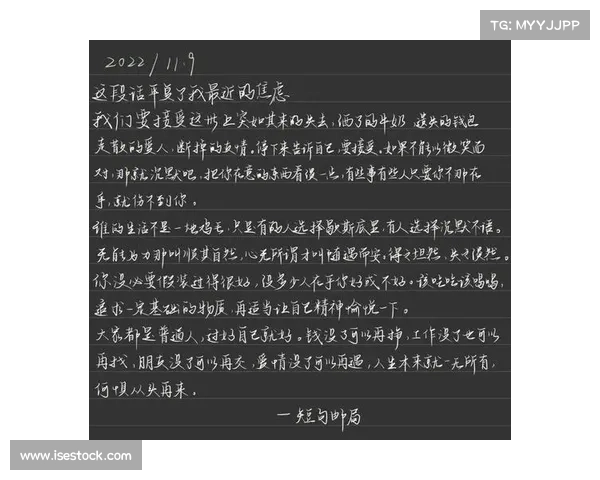 TG: MYYJJPP
2022/11.9
这段话平复了我最近的焦虑
我们要接受这世上突如其来的失去，洒了的牛奶，遗失的钱包
走散的爱人，断掉的友情。停下来告诉自己，要接受。如果不能以微笑面
对，那就沉默吧，把你在意的东西看淡一点，有些事有些人只要你不那在
乎，就伤不到你。
谁的生活不是一地鸡毛，只是有的人选择歇斯底里，有人选择沉默不语。
无能为力那叫顺其自然，心无所谓才叫随遇而安。得之坦然，失之淡然。
你没必要假装过得很好，没多少人在乎你好或不好。该吃吃该喝喝，
追求一定基础的物质，再适当让自己精神愉悦一下。
大家都是普通人，过好自己就好。钱没了可以再挣，工作没了也可以
再找，朋友没了可以再交，爱情没了可以再遇，人生本来就一无所有，
何惧从头再来。
一短句邮局
www.isestock.com